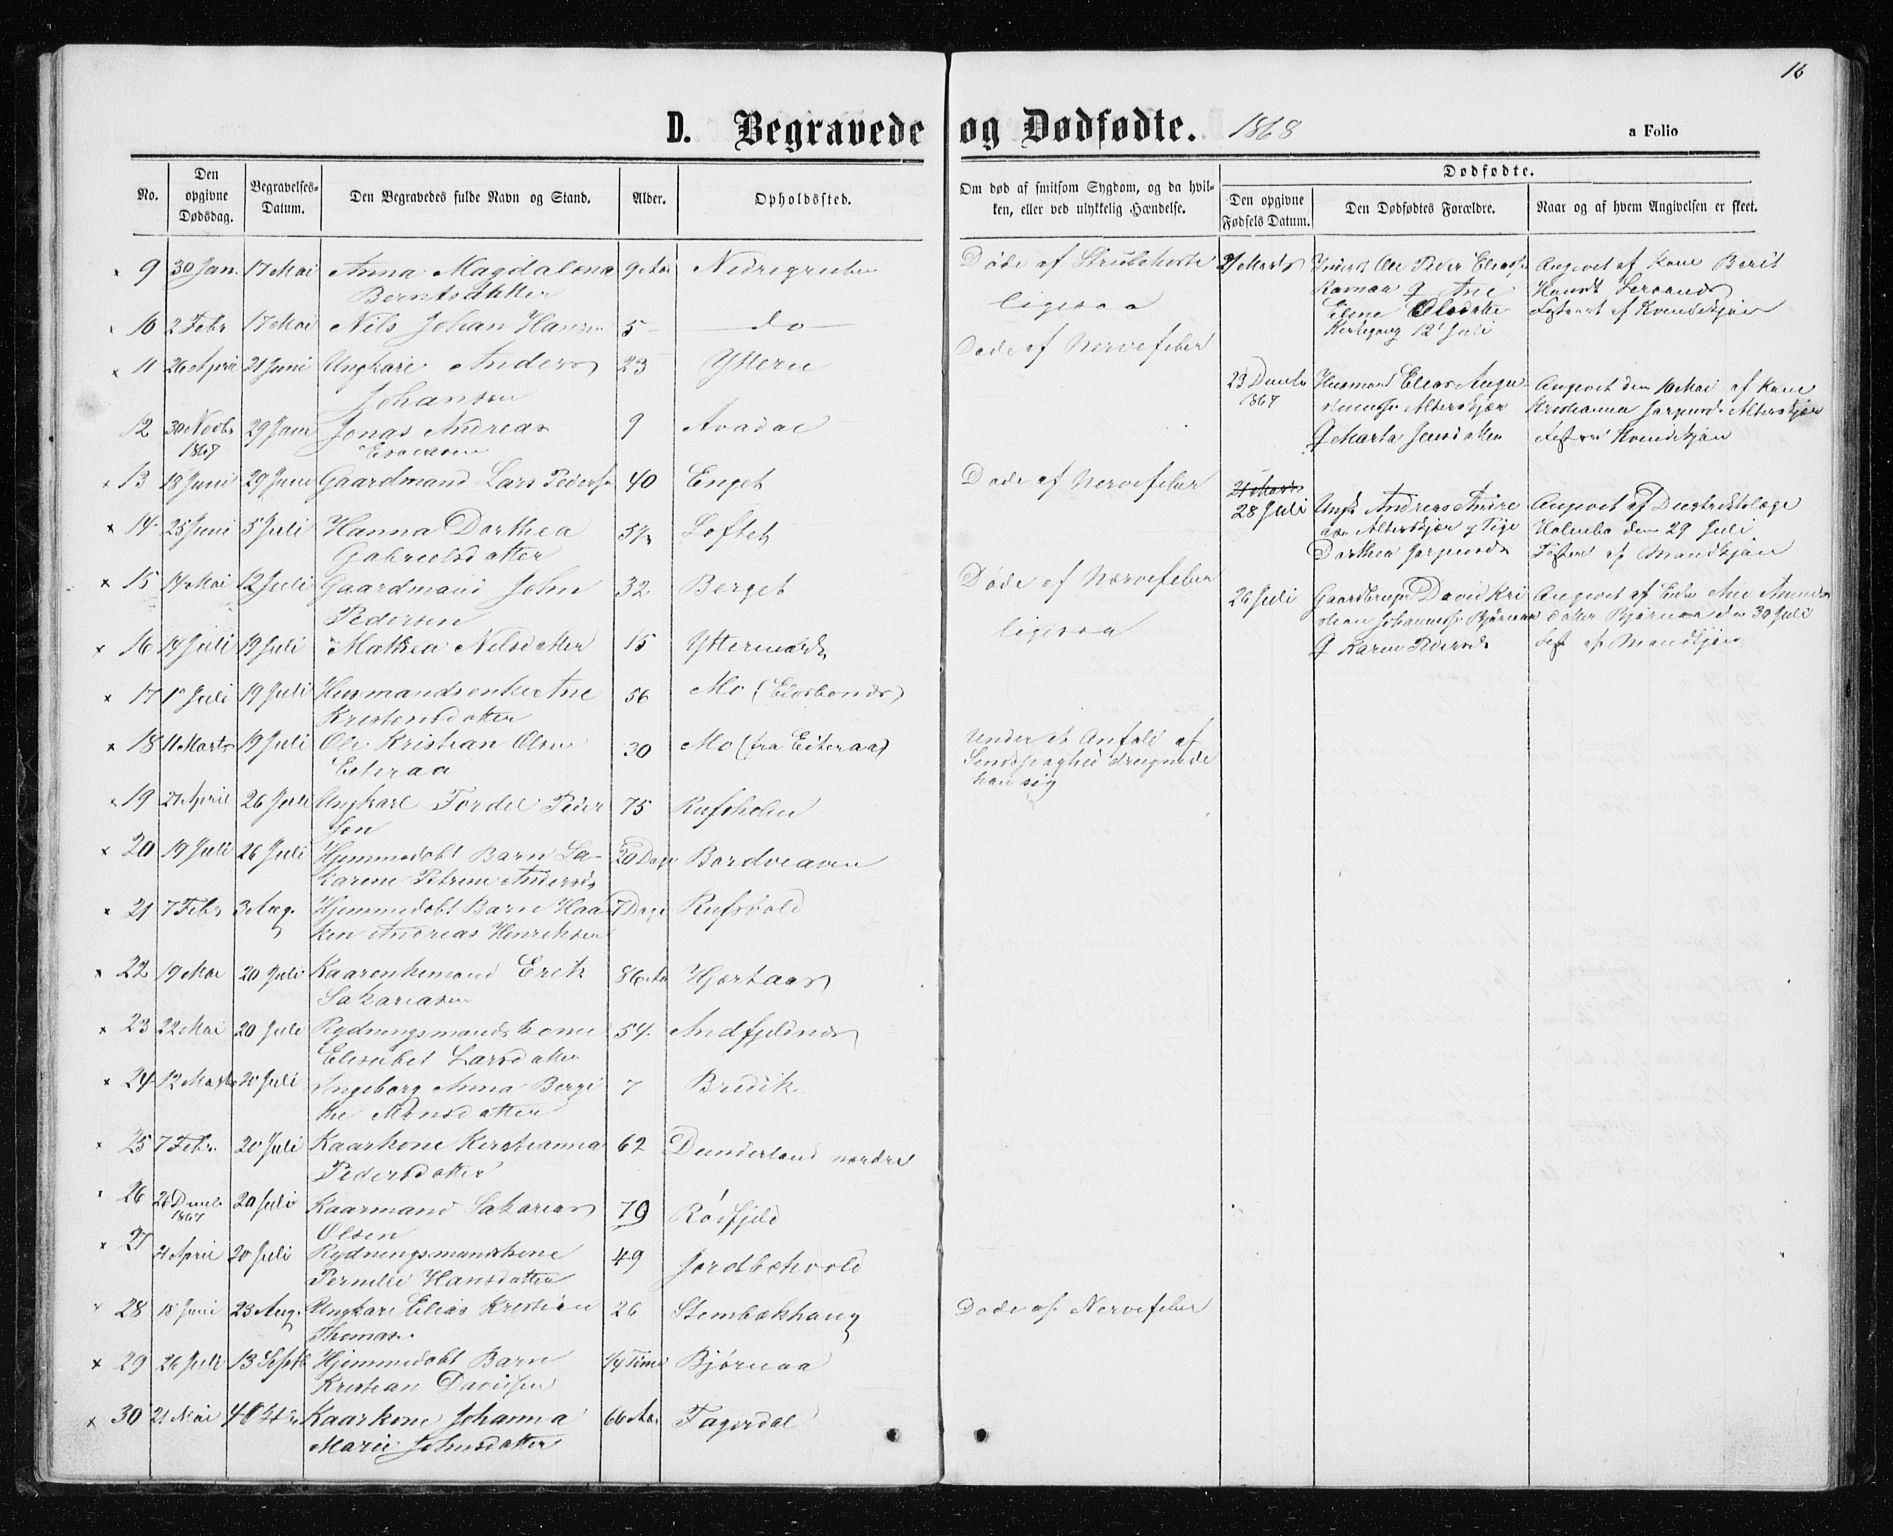 16
D. Begravede og Dødfødte. 1868
a Folio
No.
Den opgivne Dødsdag.
Begravelses-Datum.
Den Begravedes fulde Navn og Stand.
Alder.
Opholdssted.
Om død af smitsom Sygdom, og da hvilken, eller ved ulykkelig Hændelse.
Dødfødte.
Den opgivne Fødsels Datum.
Den Dødfødtes Forældre.
Naar og af hvem Angivelsen er skeet.
9 30 Jan. 17 Mai Anna Magdalena 9 Aar Døde af Strubehoste
Berntsdatter ligesaa
10 2 Febr 17 Mai Nils Johan Hansen 5 — do —
11 26 April 21 Juni Ungkarl Anders 23 Yttern Døde af Nervefeber
Johansen
12 30 Novbr 29 Juni Jonas Andreas 9 Avadal
1867
13 18 Juni 29 Juni Gaardmand Lars Peders. 40 Enget Døde af Nervefeber
14 25 Juni 5 Juli Hanna Dorthea Loftet
Gabrielsdatter
15 14 Mai 12 Juli Gaardmand John 32 Berget Døde af Nervefeber
Pedersen
16 14 Juli 19 Juli Mathea Nilsdatter 15 ligesaa
17 1 Juli 19 Juli Husmandsenke Ane 56 Mo
Kristensdatter
18 11 Marts 19 Juli Ole Kristian Olsen 30 Mo (fra Eiteraa) Under et Anfald af
Eiteraa Sindssyghed druknede
han sig
19 21 April 26 Juli Ungkarl Tordel Peder 75 Rufsholm
sen
20 19 Juli 26 Juli Hjemmedøbt Barn Sa- 20 Dage
karine Petrine Andersd.
21 7 Febr 3 Aug. Hjemmedøbt Barn Haa 7 Dage Rufsvold
ken Andreas Henriksen
22 19 Mai 20 Juli Kaarenkemand Erik 86 Aar Hjortaas
Sakariasen
23 22 Mai 20 Juli Rydningsmands Kone 54 Andfjeldnes
Elisabet Larsdatter
24 12 Marts 20 Juli Ingeborg Anna Bergi 7 Bredik
the Monsdatter
25 7 Febr. 20 Juli Kaarkone Kirstianna 62 Dunderland nordre
Pedersdatter
26 26 Decmbr 20 Juli Kaarmand Sakarias 79 Røsfjeld
1867 Olsen
27 21 April 20 Juli Rydningsmandskone 49 Jordbækvold
Pernille Hansdatter
28 15 Juni 23 Aug. Ungkarl Elias Kristian 26 Stenbækhaug Døde af Nervefeber
Thomas.
29 26 Juli 13 Septb Hjemmedøbt Barn 1/4 Time Bjørnaa
Kristian Davidsen
30 21 Mai Kaarkone Johanna 66 Aar Fagerdal
Marie Johnsdatter
21 Marts Ole Peder Eliass. Angivet af Kone Berit
Ramaa & Ane
Eline Olsdatter af Kvindekjøn
Kirkegang 12 Juli
23 Decmbr Husmand Elias Augu Angivet den 10 Mai af Kone
1867 Altersskjær Kristianna Jørgensd. Altersskjær
& Marta Jensdatter Kvindekjøn
21 Marts
28 Juli Ungk. Andreas Angivet af Distriktslæge
Alterskjær & Pige Holmbo den 29 Juli
Dorthea Jørgensd. af Mandkjøn
26 Juli Gaardbruger David Kri Angivet af Enke Ane
stian Johanness. Bjørnaa Bjørnaa den 30 Juli
& Karen Pedersd. af Mandkjøn